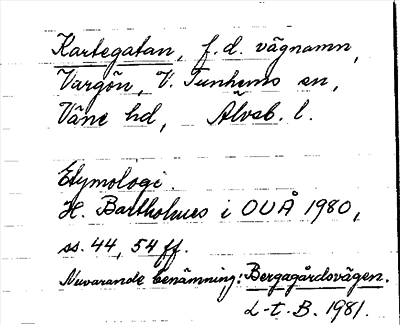 Kartegatan, f.d. vägnamn,
Vargön, V. Tunhems sn,
Väne hd, Älvsb. l.
Etymologi.
H. Bartholmes i OUÅ 1980,
ss. 44, 54 ff.
Nuvarande benämning: Bergagårdsvägen.
L-t. B. 1981.